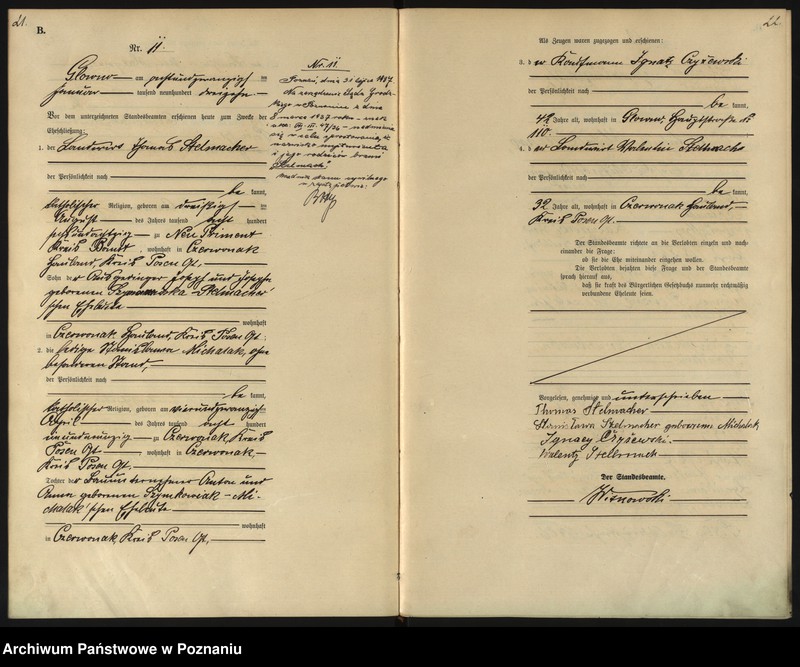 21.
B.
Nr. 11.
Glowno am sechsundzwanzigsten
Januar tausend neunhundert dreizehn
Vor dem unterzeichneten Standesbeamten erschienen heute zum Zwecke der
Eheschließung:
1. der Landwirt Thomas Stelmacher
der Persönlichkeit nach
be kannt,
katholischer Religion, geboren am dreißigsten
August des Jahres tausend acht hundert
sechsundachtzig zu Neu
Kreis Bomst, wohnhaft in Czerwonak
Hauland, Kreis Posen Ost.
Sohn der Ausgedinger Josef und Josefa
geborenen Stelmacher'
schen Eheleute
wohnhaft
in Czerwonak Hauland, Kreis Posen Ost;
2. die ledige Stanislawa Michalak, ohne
besonderen Stand,
der Persönlichkeit nach
be kannt,
katholischer Religion, geboren am vierundzwanzigsten
April des Jahres tausend acht hundert
neunundneunzig zu Czerwonak, Kreis
Posen Ost, wohnhaft in Czerwonak,
Kreis Posen Ost.
Tochter der Bauunternehmer Anton und
Anna geborenen Szymkowiak - Mi-
chalak'schen Eheleute
wohnhaft
in Czerwonak, Kreis Posen Ost,
Nr. 11
dnia 21 lipca 1927
Na zarządzenie Sądu Grodz-
kiego w Poznaniu z dnia
8 marca 1927 roku
się
nazwisko
i jego rodziców brzmi
"Stelmach".
22
Als Zeugen waren zugezogen und erschienen:
3. der Kaufmann Ignatz Czyżewski
der Persönlichkeit nach
be kannt,
42 Jahre alt, wohnhaft in Glowno, Hauptstraße №
110.
4. der Landwirt Valentin Stellmach
der Persönlichkeit nach
be kannt,
32 Jahre alt, wohnhaft in Czerwonak Hauland,
Kreis Posen Ost.
Der Standesbeamte richtete an die Verlobten einzeln und nach-
einander die Frage:
ob sie die Ehe miteinander eingehen wollen.
Die Verlobten bejahten diese Frage und der Standesbeamte
sprach hierauf aus,
daß sie kraft des Bürgerlichen Gesetzbuchs nunmehr rechtmäßig
verbundene Eheleute seien.
Vorgelesen, genehmigt und unterschrieben
Thomas Stelmacher
Stanislawa Stelmacher geborene Michalak
Ignacy Czyżewski.
Walenty Stellmach
Der Standesbeamte.
Wisnowski
Archiwum Państwowe w Poznaniu